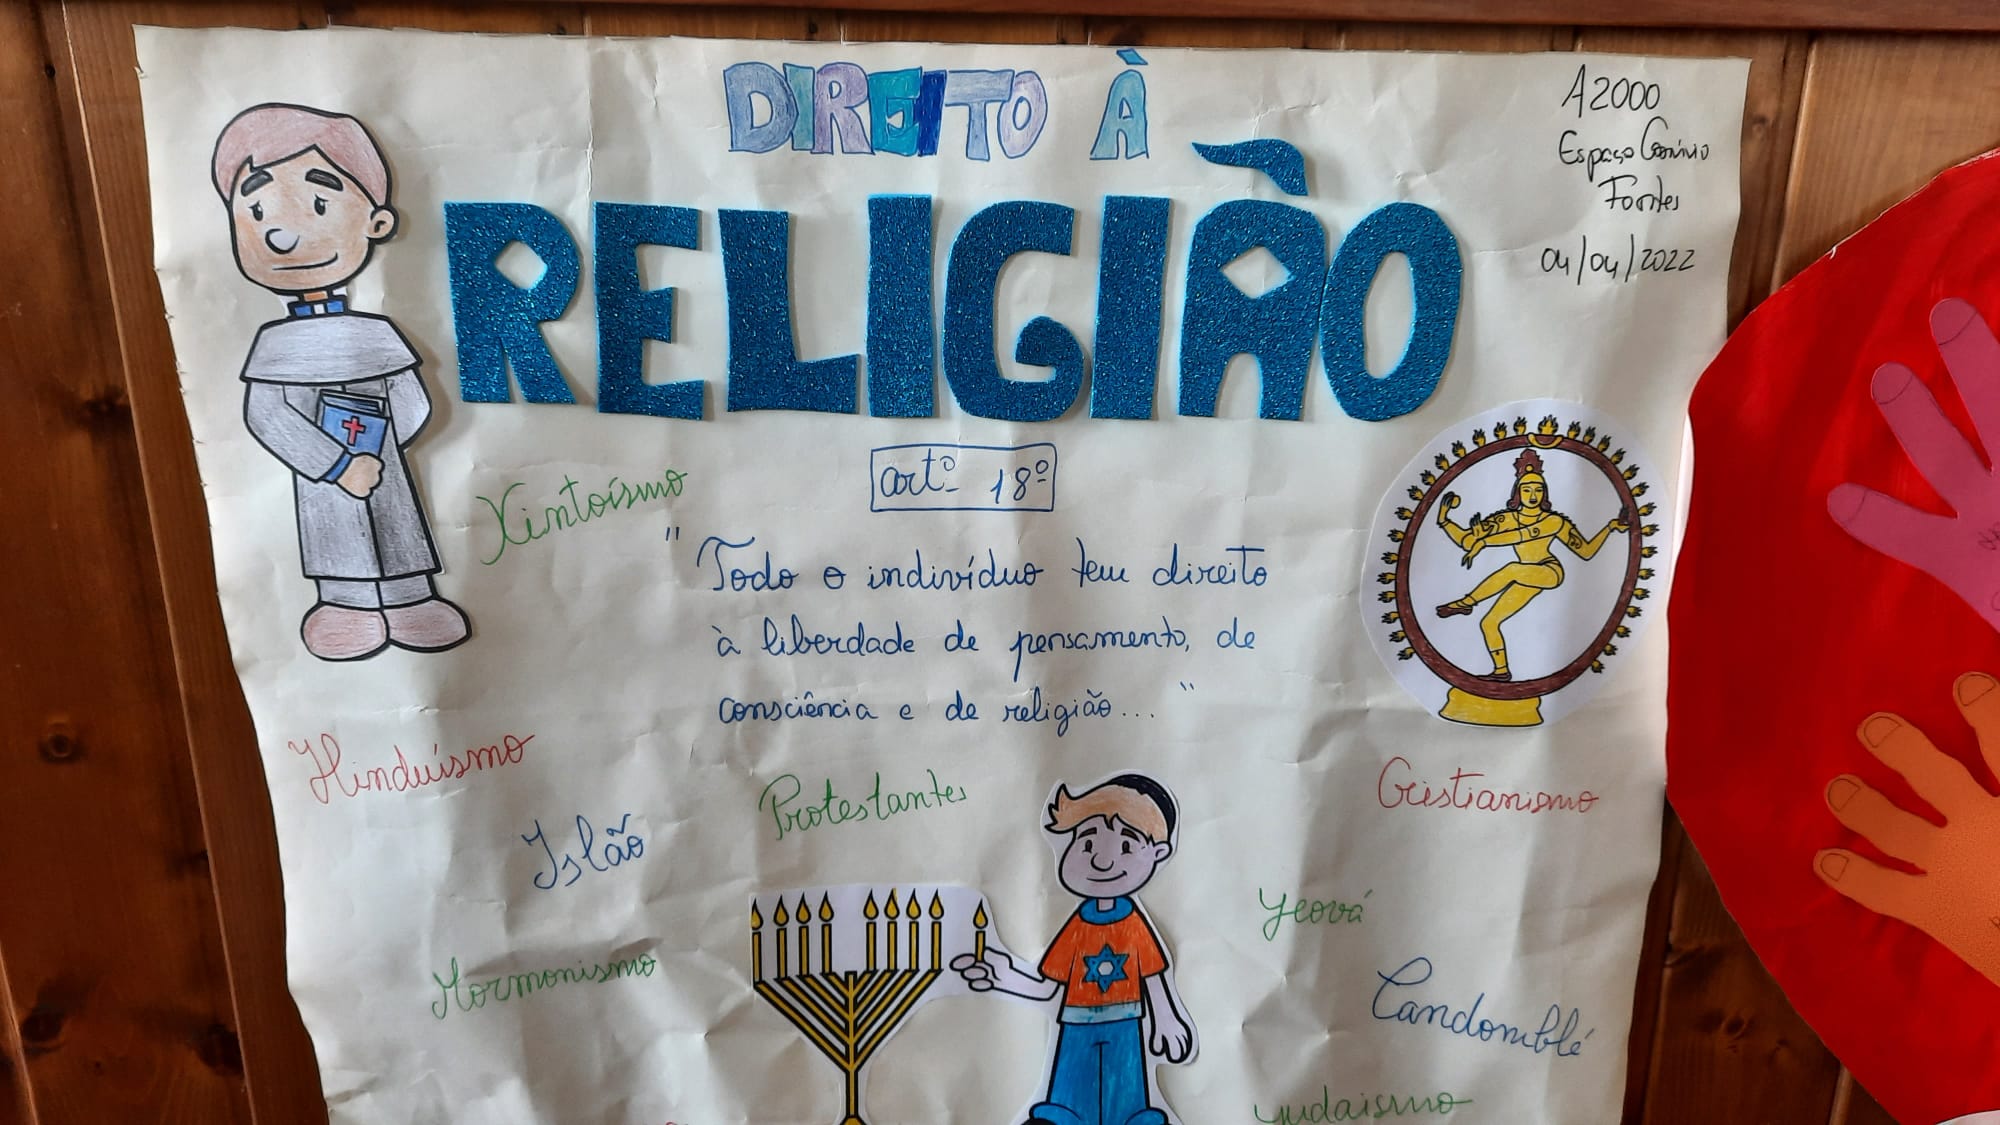 DIREITO À
RELIGIÃO
A2000
Espaço
Fontes
04/04/2022
artº 18º
Xintoísmo
"Todo o indivíduo tem direito
à liberdade de pensamento, de
consciência e de religião..."
Hinduísmo
Protestantes
Cristianismo
Islão
Yeová
Mormonismo
Candomblé
Yudaismo